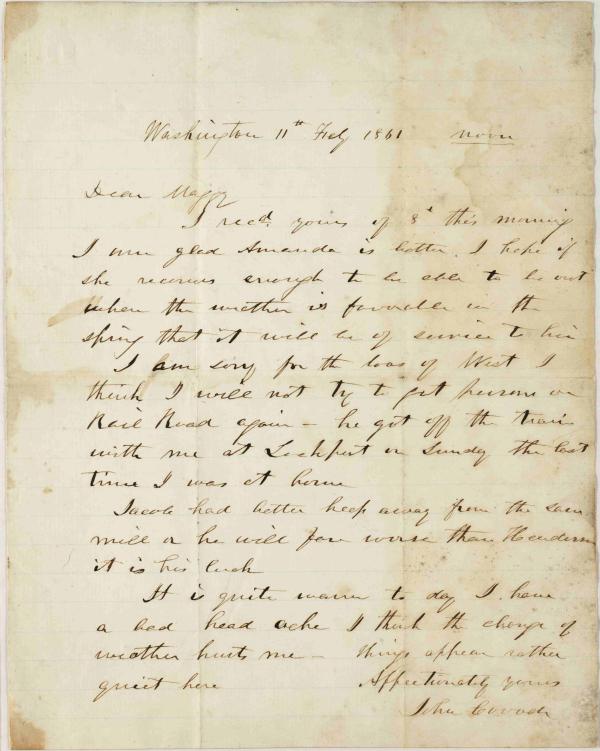 Washington 11th Feby 1861 noon
Dear Maggy
I recd. yours of 8th this morning
I am glad Amanda is better. I hope if
she recovers enough to be able to be out
when the weather is favorable in the
spring that it will be of service to her
I am sorry for the loss of West I
think I will not try to get persons on
Rail Road again - he got off the train
with me at Lockport on Sunday the last
time I was at home
Jacob had better keep away from the saw
mill or he will fare worse than Henderson
it is his luck
It is quite warm to day I have
a bad head ache I think the change of
weather hurts me - things appear rather
quiet here Affectionately yours
John Covode